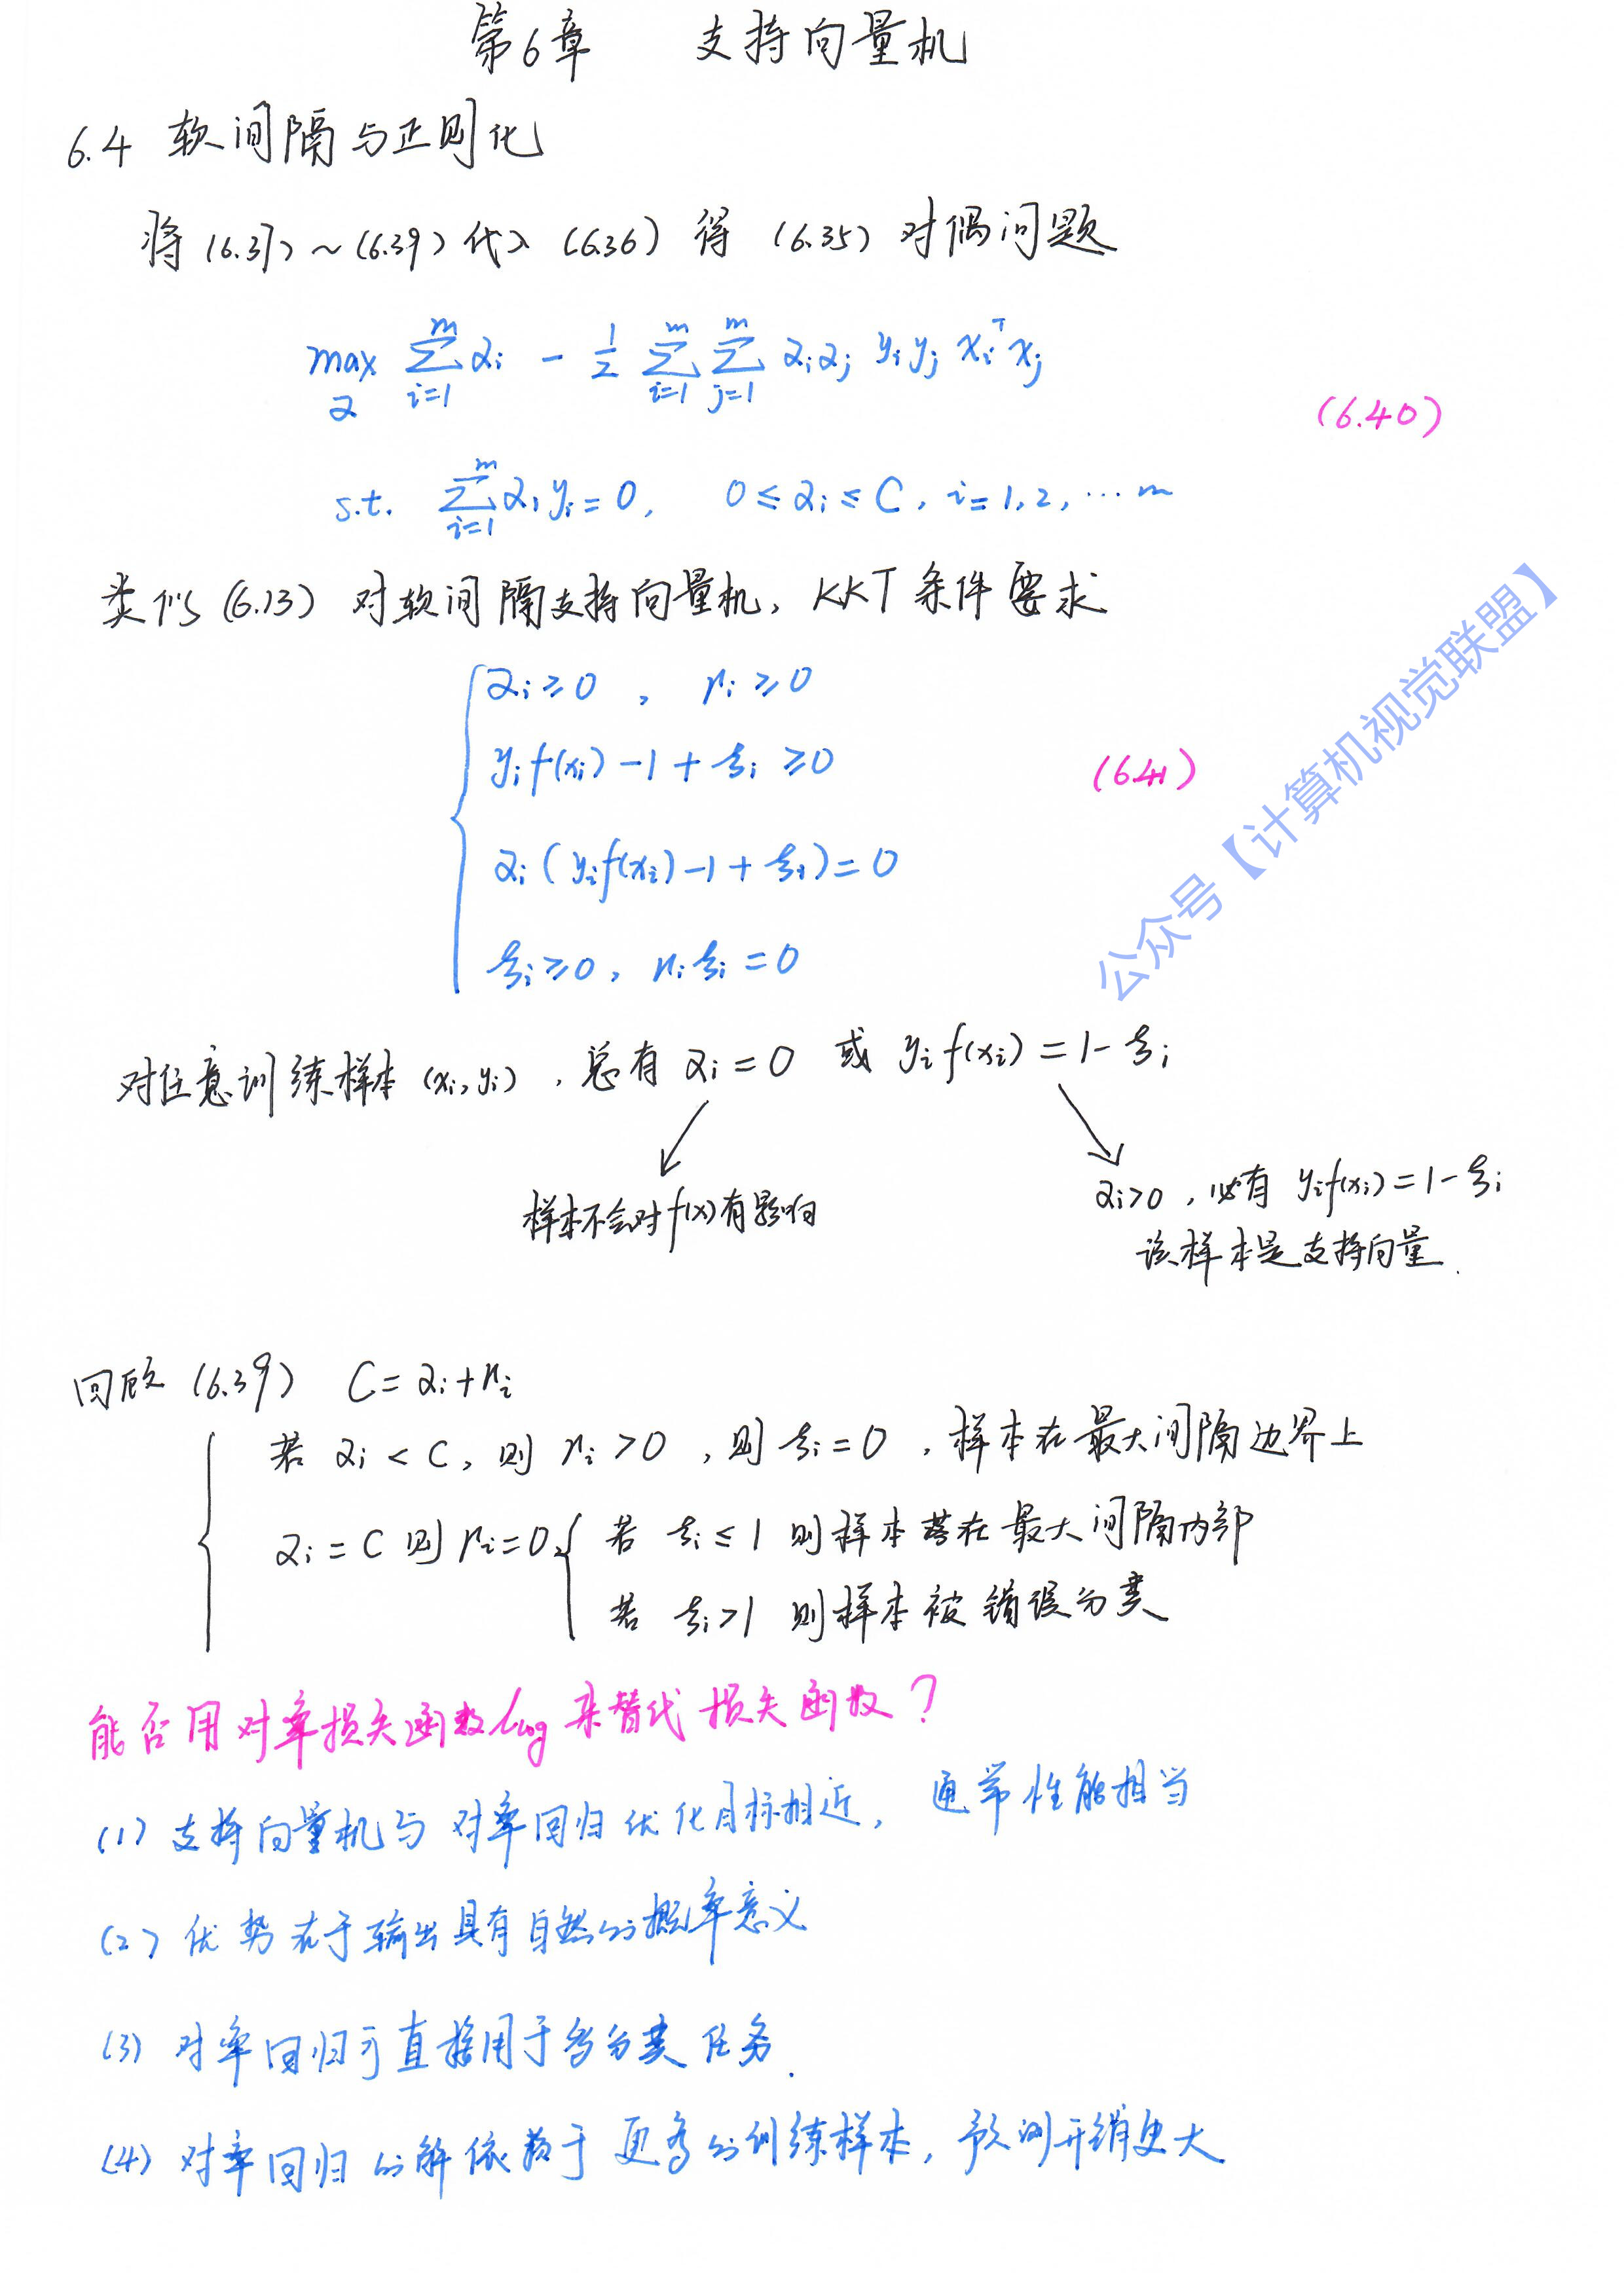 第6章 支持向量机
6.4 软间隔与正则化
将(6.37)~(6.39)代入(6.36)得(6.35)对偶问题
max_α ∑_{i=1}^{m} α_i - 1/2 ∑_{i=1}^{m} ∑_{j=1}^{m} α_i α_j y_i y_j x_i^T x_j
(6.40)
s.t. ∑_{i=1}^{m} α_i y_i = 0, 0 ≤ α_i ≤ C, i=1,2,…m
类似(6.13)对软间隔支持向量机, KKT条件要求
α_i ≥ 0, μ_i ≥ 0
y_i f(x_i) - 1 + ξ_i ≥ 0
(6.41)
α_i (y_i f(x_i) - 1 + ξ_i) = 0
ξ_i ≥ 0, μ_i ξ_i = 0
公众号【计算机视觉联盟】
对任意训练样本(x_i, y_i), 总有 α_i = 0 或 y_i f(x_i) = 1 - ξ_i
样本不会对f(x)有影响
α_i > 0, 必有 y_i f(x_i) = 1 - ξ_i
该样本是支持向量.
回顾(6.39) C = α_i + μ_i
若 α_i < C, 则 μ_i > 0, 则 ξ_i = 0, 样本在最大间隔边界上
α_i = C 则 μ_i = 0, 若 ξ_i ≤ 1 则样本落在最大间隔内部
若 ξ_i > 1 则样本被错误分类
能否用对率损失函数 l_log 来替代损失函数?
(1) 支持向量机与对率回归优化目标相近, 通常性能相当
(2) 优势在于输出具有自然的概率意义
(3) 对率回归可直接用于多分类任务.
(4) 对率回归的解依赖于更多的训练样本, 预测开销更大